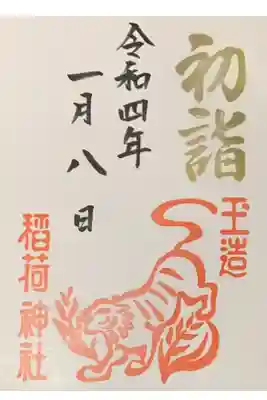 初詣
令和四年
一月八日
玉造
稲荷神社